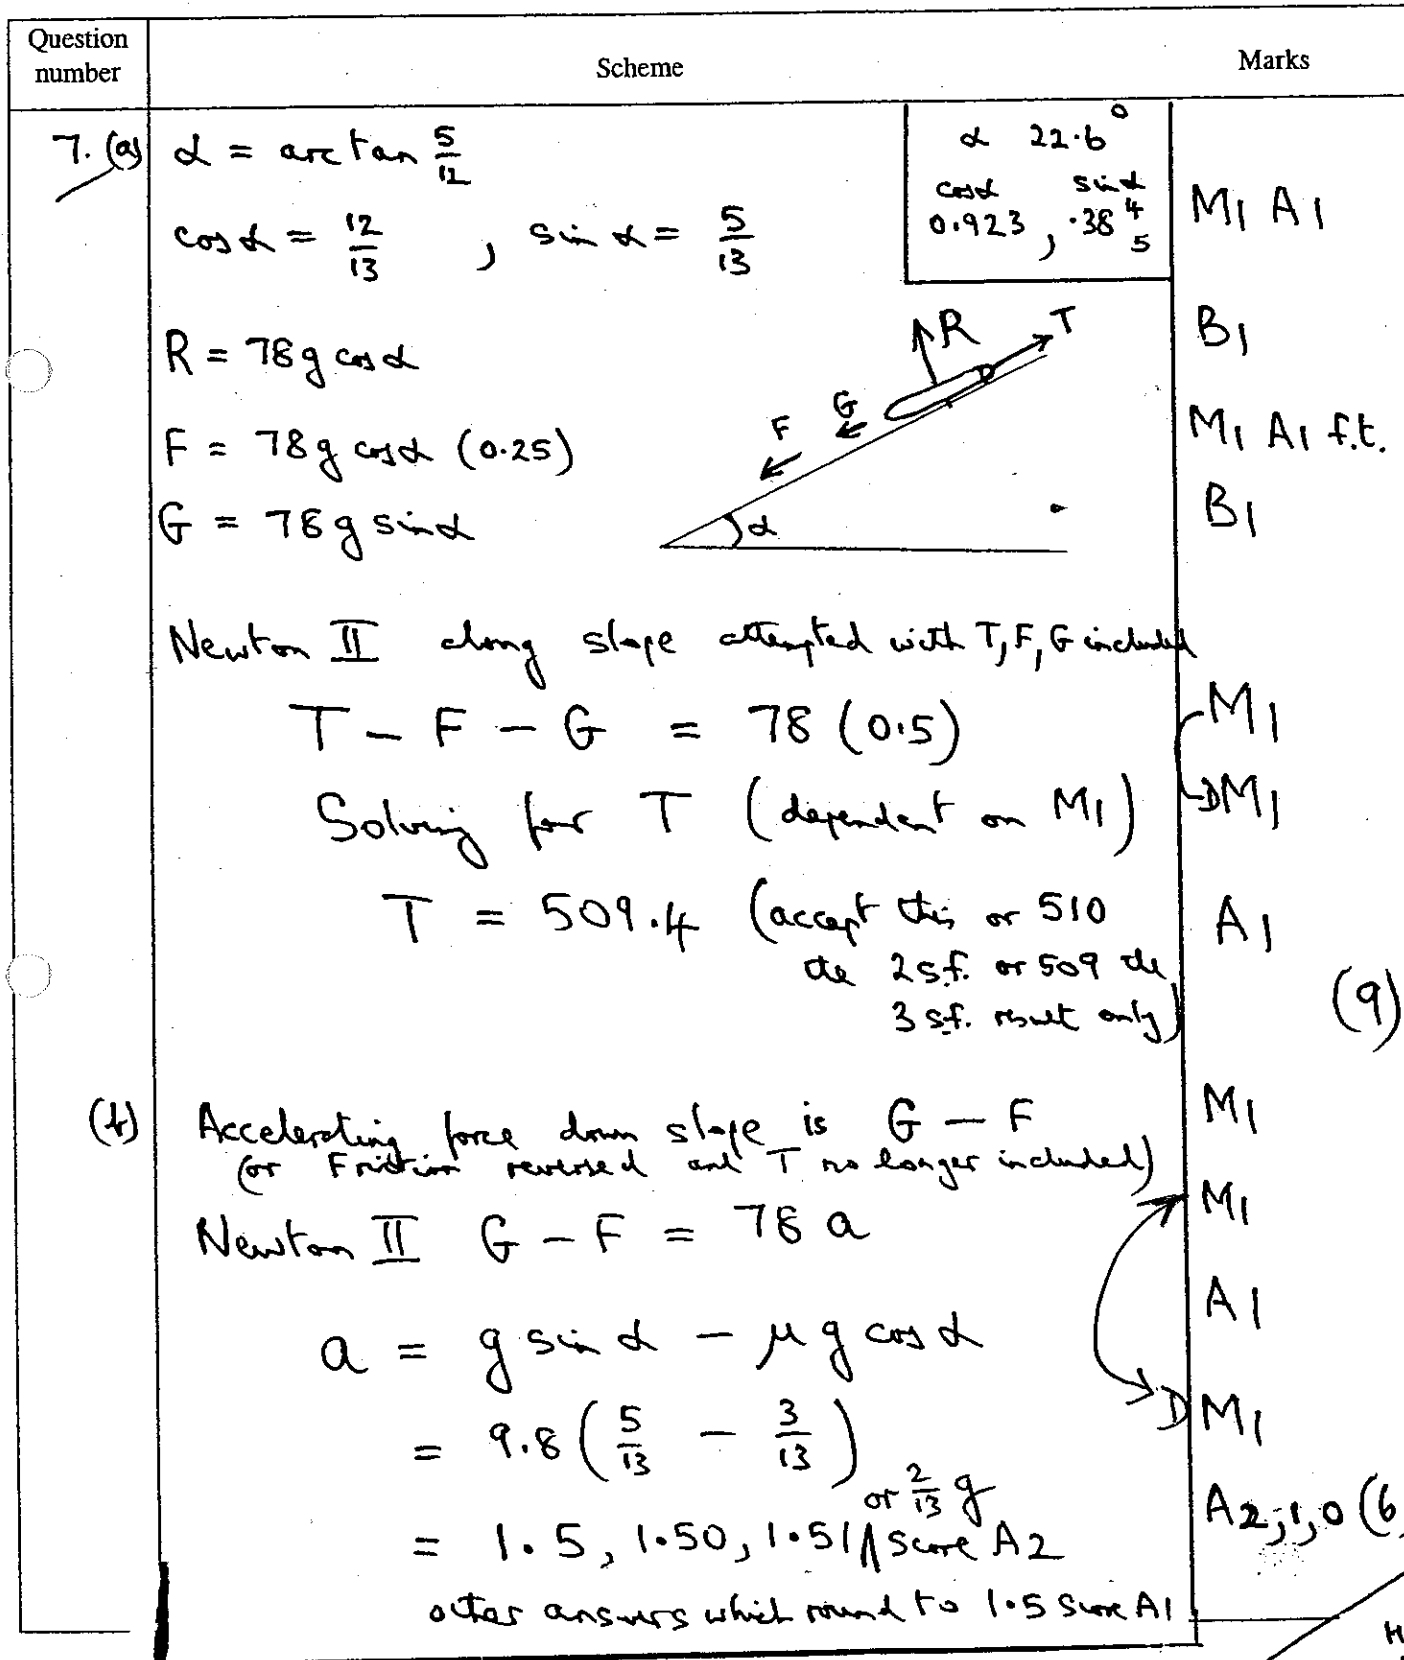 Question number Scheme Marks
7. (a) α = arctan 5/12
α 22.6°
cosα sinα
0.923 , .38 4/5 M1 A1
cosα = 12/13 , sin α = 5/13
R = 78g cosα B1
R T
F = 78g cosα (0.25) M1 A1 f.t.
F G
G = 78g sinα B1
α
Newton II along slope attempted with T, F, G included
T - F - G = 78 (0.5) M1
Solving for T (dependent on M1) DM1
T = 509.4 (accept this or 510 A1
the 2sf. or 509 the
3 sf. result only) (9)
(b) Accelerating force down slope is G - F M1
(or Friction reversed and T no longer included)
Newton II G - F = 78 a M1
A1
a = g sin α - μ g cos α
= 9.8 ( 5/13 - 3/13 ) DM1
or 2/13 g
= 1.5, 1.50, 1.51 score A2 A2,1,0 (6
other answers which round to 1.5 score A1
H